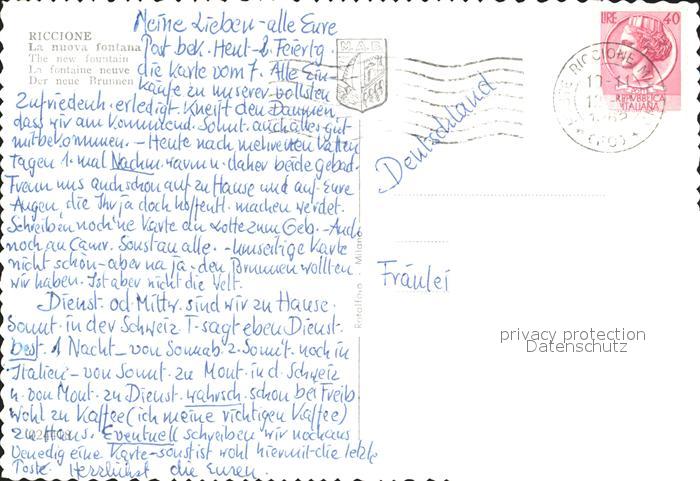 RICCIONE
La nuova fontana
The new fountain
La fontaine neuve
Der neue Brunnen
Meine Lieben - alle Eure
Post bek. Heut - 2. Feiertg.
die Karte vom 7. Alle Ein-
käufe zu unserer vollsten
Zufriedenh. erledigt. Kneift den Daumen,
dass wir am kommend. Sonnt. auch alles gut
mitbekommen. - Heute nach mehreren kalten
Tagen 1. mal Nachm. warm u. daher beide gebad.
Freun uns auch schon auf zu Hause und auf Eure
Augen, die Ihr ja doch hoffentl. machen werdet.
Schreiben noch 'ne Karte an Lotte zum Geb. - Auch
noch an Sonst an alle. - umseitige Karte
nicht schön - aber na ja - den Brunnen wollten
wir haben. Ist aber nicht die Welt.
Dienst. od. Mittw. sind wir zu Hause.
sonnt. in der Schweiz T. sagt eben Dienst.
best. 1 Nacht - von Sonnab. z. Sonnt. noch in
Italien - von Sonnt. zu Mont. in d. Schweiz
u. von Mont. zu Dienst. wahrsch. schon bei Freib.
wohl zu Kaffee (ich meine richtigen Kaffee)
zu Haus. Eventuell schreiben wir noch aus
Venedig eine Karte - sonst ist wohl hiermit die letzte
Poste. Herzlichst die Euren.
M.A.B.
Rotalfoto - Milano
Deutschland
Fräulei
LIRE 40
REPVBBLICA
ITALIANA
RICCIONE
privacy protection
Datenschutz